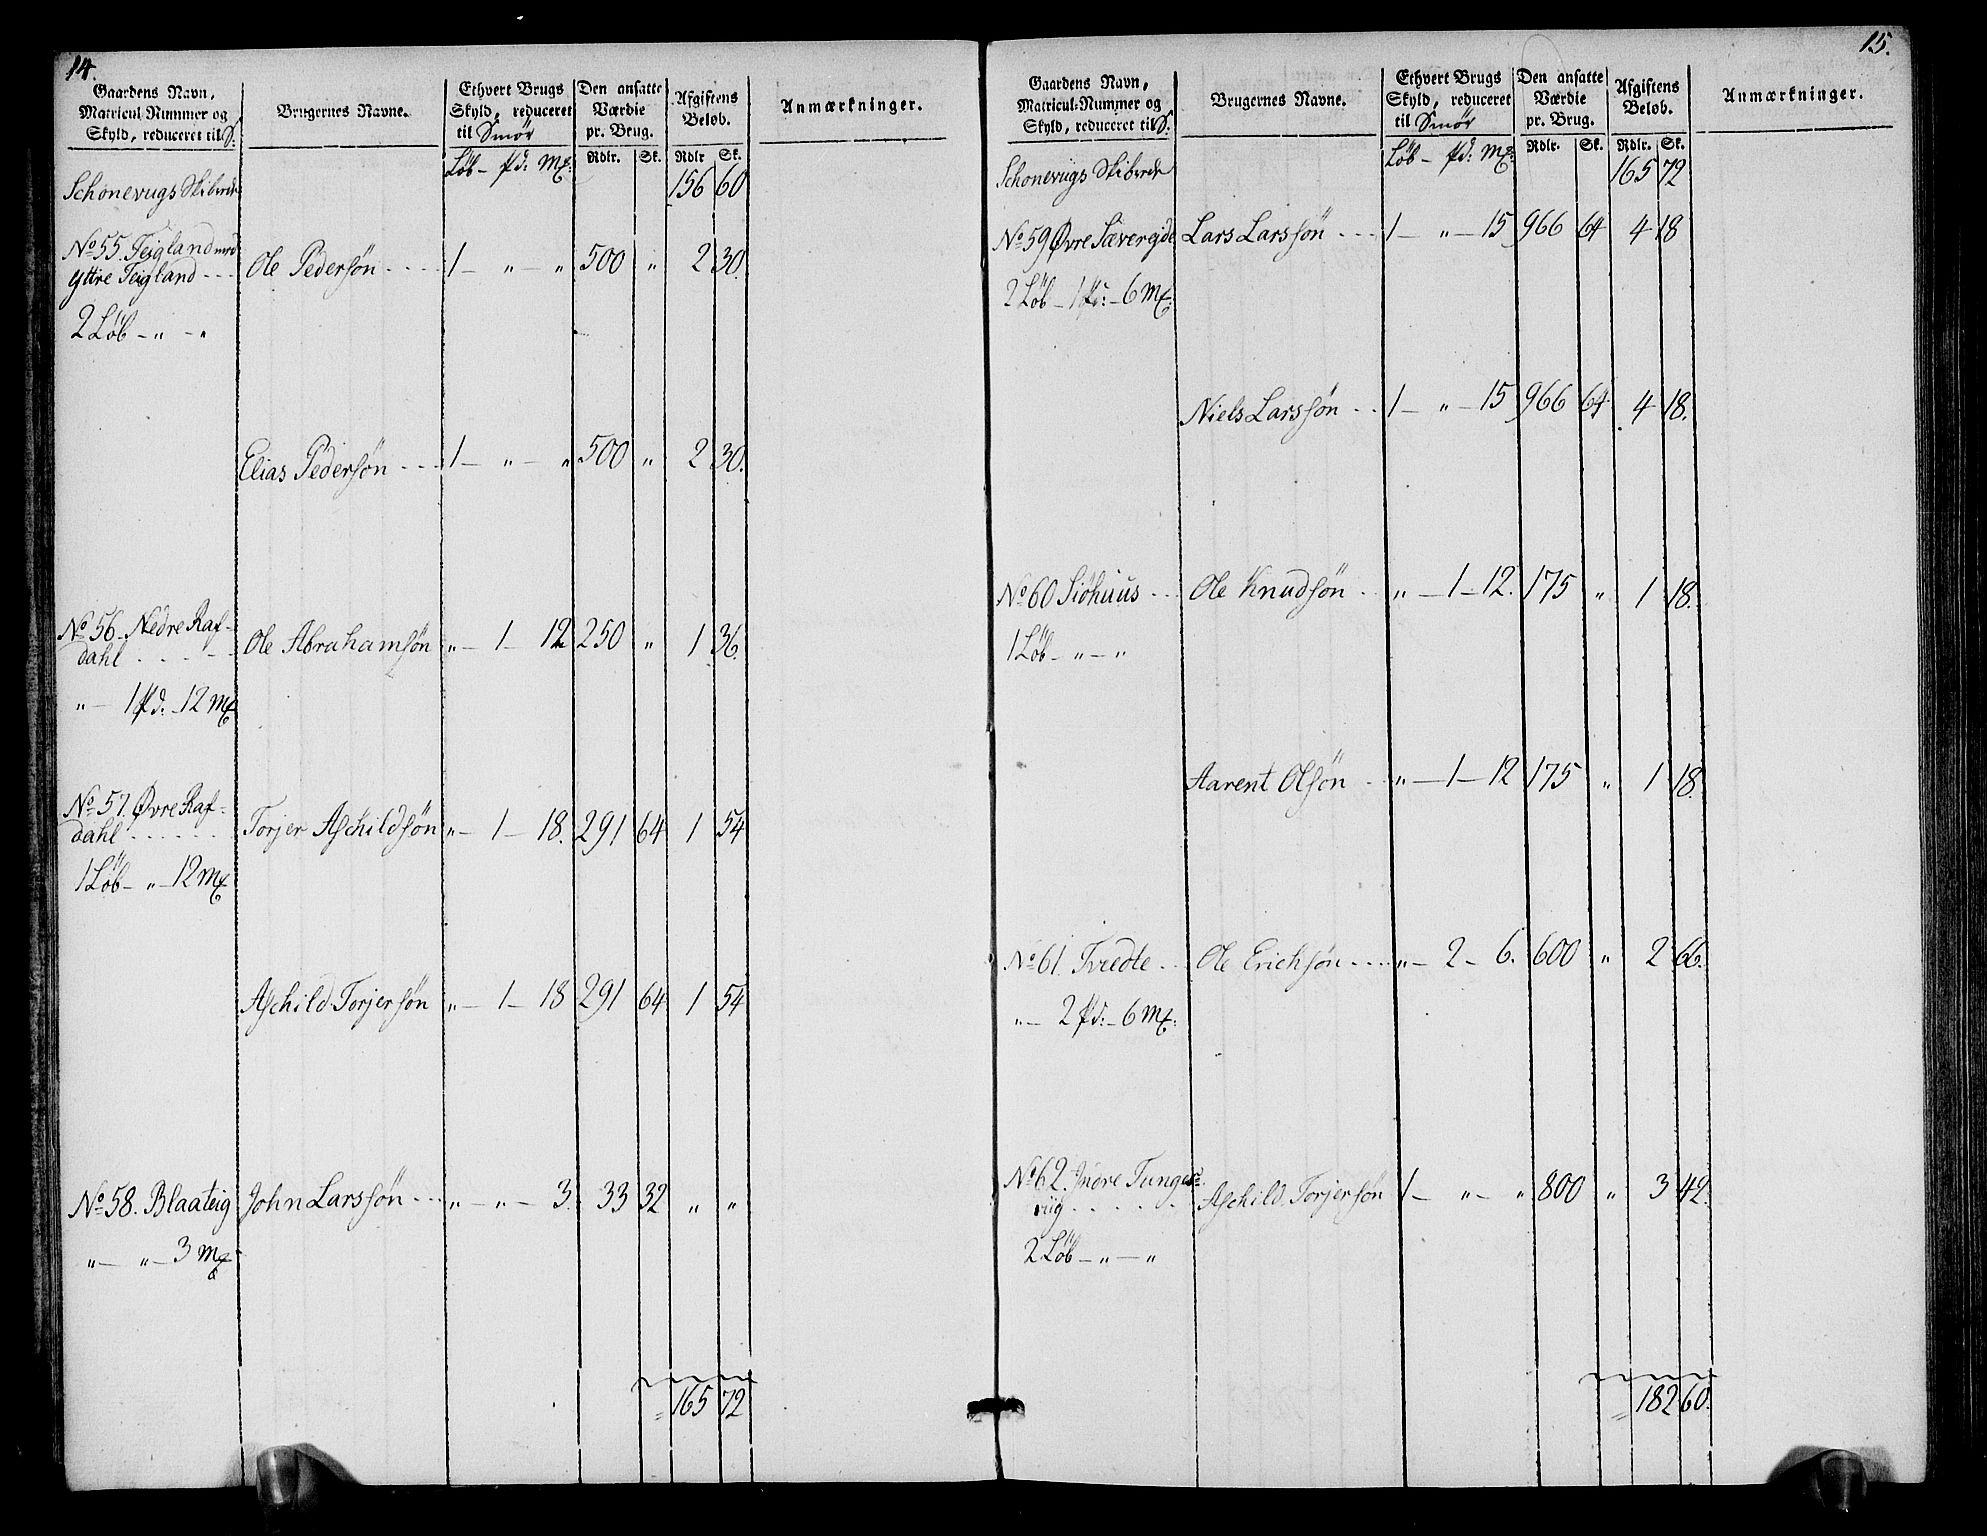 14.
Gaardens Navn, Matricul-Nummer og Skyld, reduceret til S. | Brugernes Navne. | Ethvert Brugs Skyld, reduceret til Smör | Den ansatte Værdie pr. Brug. | Afgiftens Beløb. | Anmærkninger.
Löb – pd: Mk: | Rdlr. | Sk. | Rdlr | Sk.
Schonevugs Skibrede 156 60
No 55. Teigland med
Yttre Teigland --- Ole Pedersön ---- 1 – „ – „ 500 „ 2 30.
2 Löb – „ – „
Elias Pedersön --- 1 – „ – „ 500 „ 2 30.
No 56. Nedre Raf-
dahl ----- Ole Abrahamsön „ – 1 – 12 250 „ 1 36.
„ – 1 pd: – 12 Mk
No 57. Øvre Raf-
dahl ------ Torjer Aschildsön „ – 1 – 18. 291 64 1 54
1 Löb – „ – 12 Mk
Aschild Torjersön „ – 1 – 18 291 64 1 54
No 58. Blaateig John Larssön --- „ – „ – 3. 33 32 „ „
„ – „ – 3 Mk
= 165 72
15.
Gaardens Navn, Matricul-Nummer og Skyld, reduceret til S. | Brugernes Navne. | Ethvert Brugs Skyld, reduceret til Smör | Den ansatte Værdie pr. Brug. | Afgiftens Beløb. | Anmærkninger.
Löb – pd: Mk: | Rdlr. | Sk. | Rdlr. | Sk.
Schonevugs Skibrede 165 72
No 59 Øvre Sævereyde Lars Larssön --- 1 – „ – 15 966 64 4 18
2 Löb – 1 pd: – 6 Mk:
Niels Larssön -- 1 – „ – 15 966 64 4 18.
No 60 Siöhuus -- Ole Knudsön -- „ – 1 – 12. 175 „ 1 18.
1 Löb – „ – „
Aarent Olsön -- „ – 1 – 12 175 „ 1 18.
No 61. Tvedte -- Ole Erichsön ---- „ – 2 – 6. 600 „ 2 66.
„ – 2 pd: – 6 Mk:
No 62. Indre Tunges-
viig ----- Aschild Torjersön 1 – „ – „ 800 „ 3 42.
2 Löb – „ – „
= 182 60.